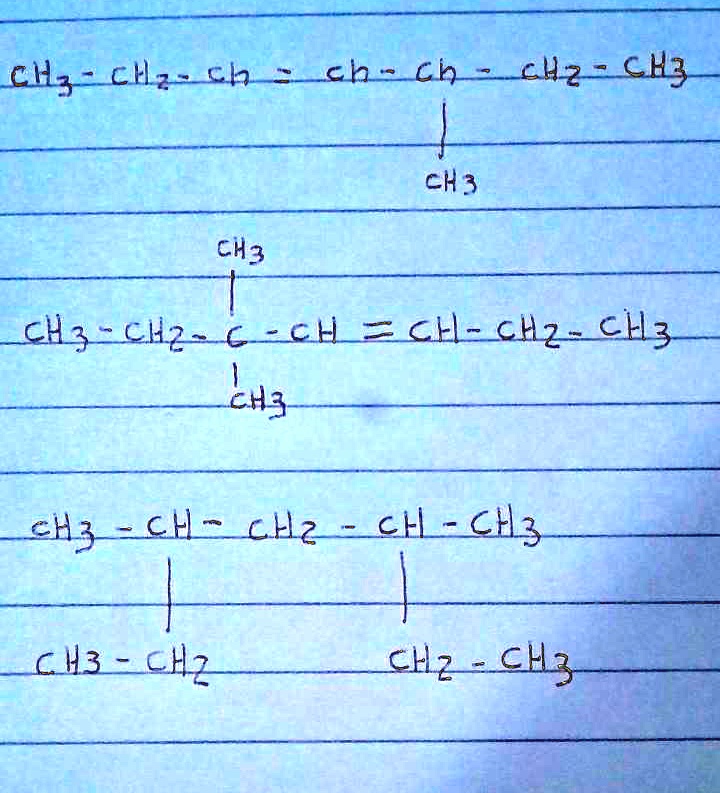 CH3 - CH2 - Ch = Ch - Ch - CH2 - CH3
CH3
CH3
CH3 - CH2 - C - CH = CH - CH2 - CH3
CH3
CH3 - CH - CH2 - CH - CH3
CH3 - CH2 CH2 - CH3